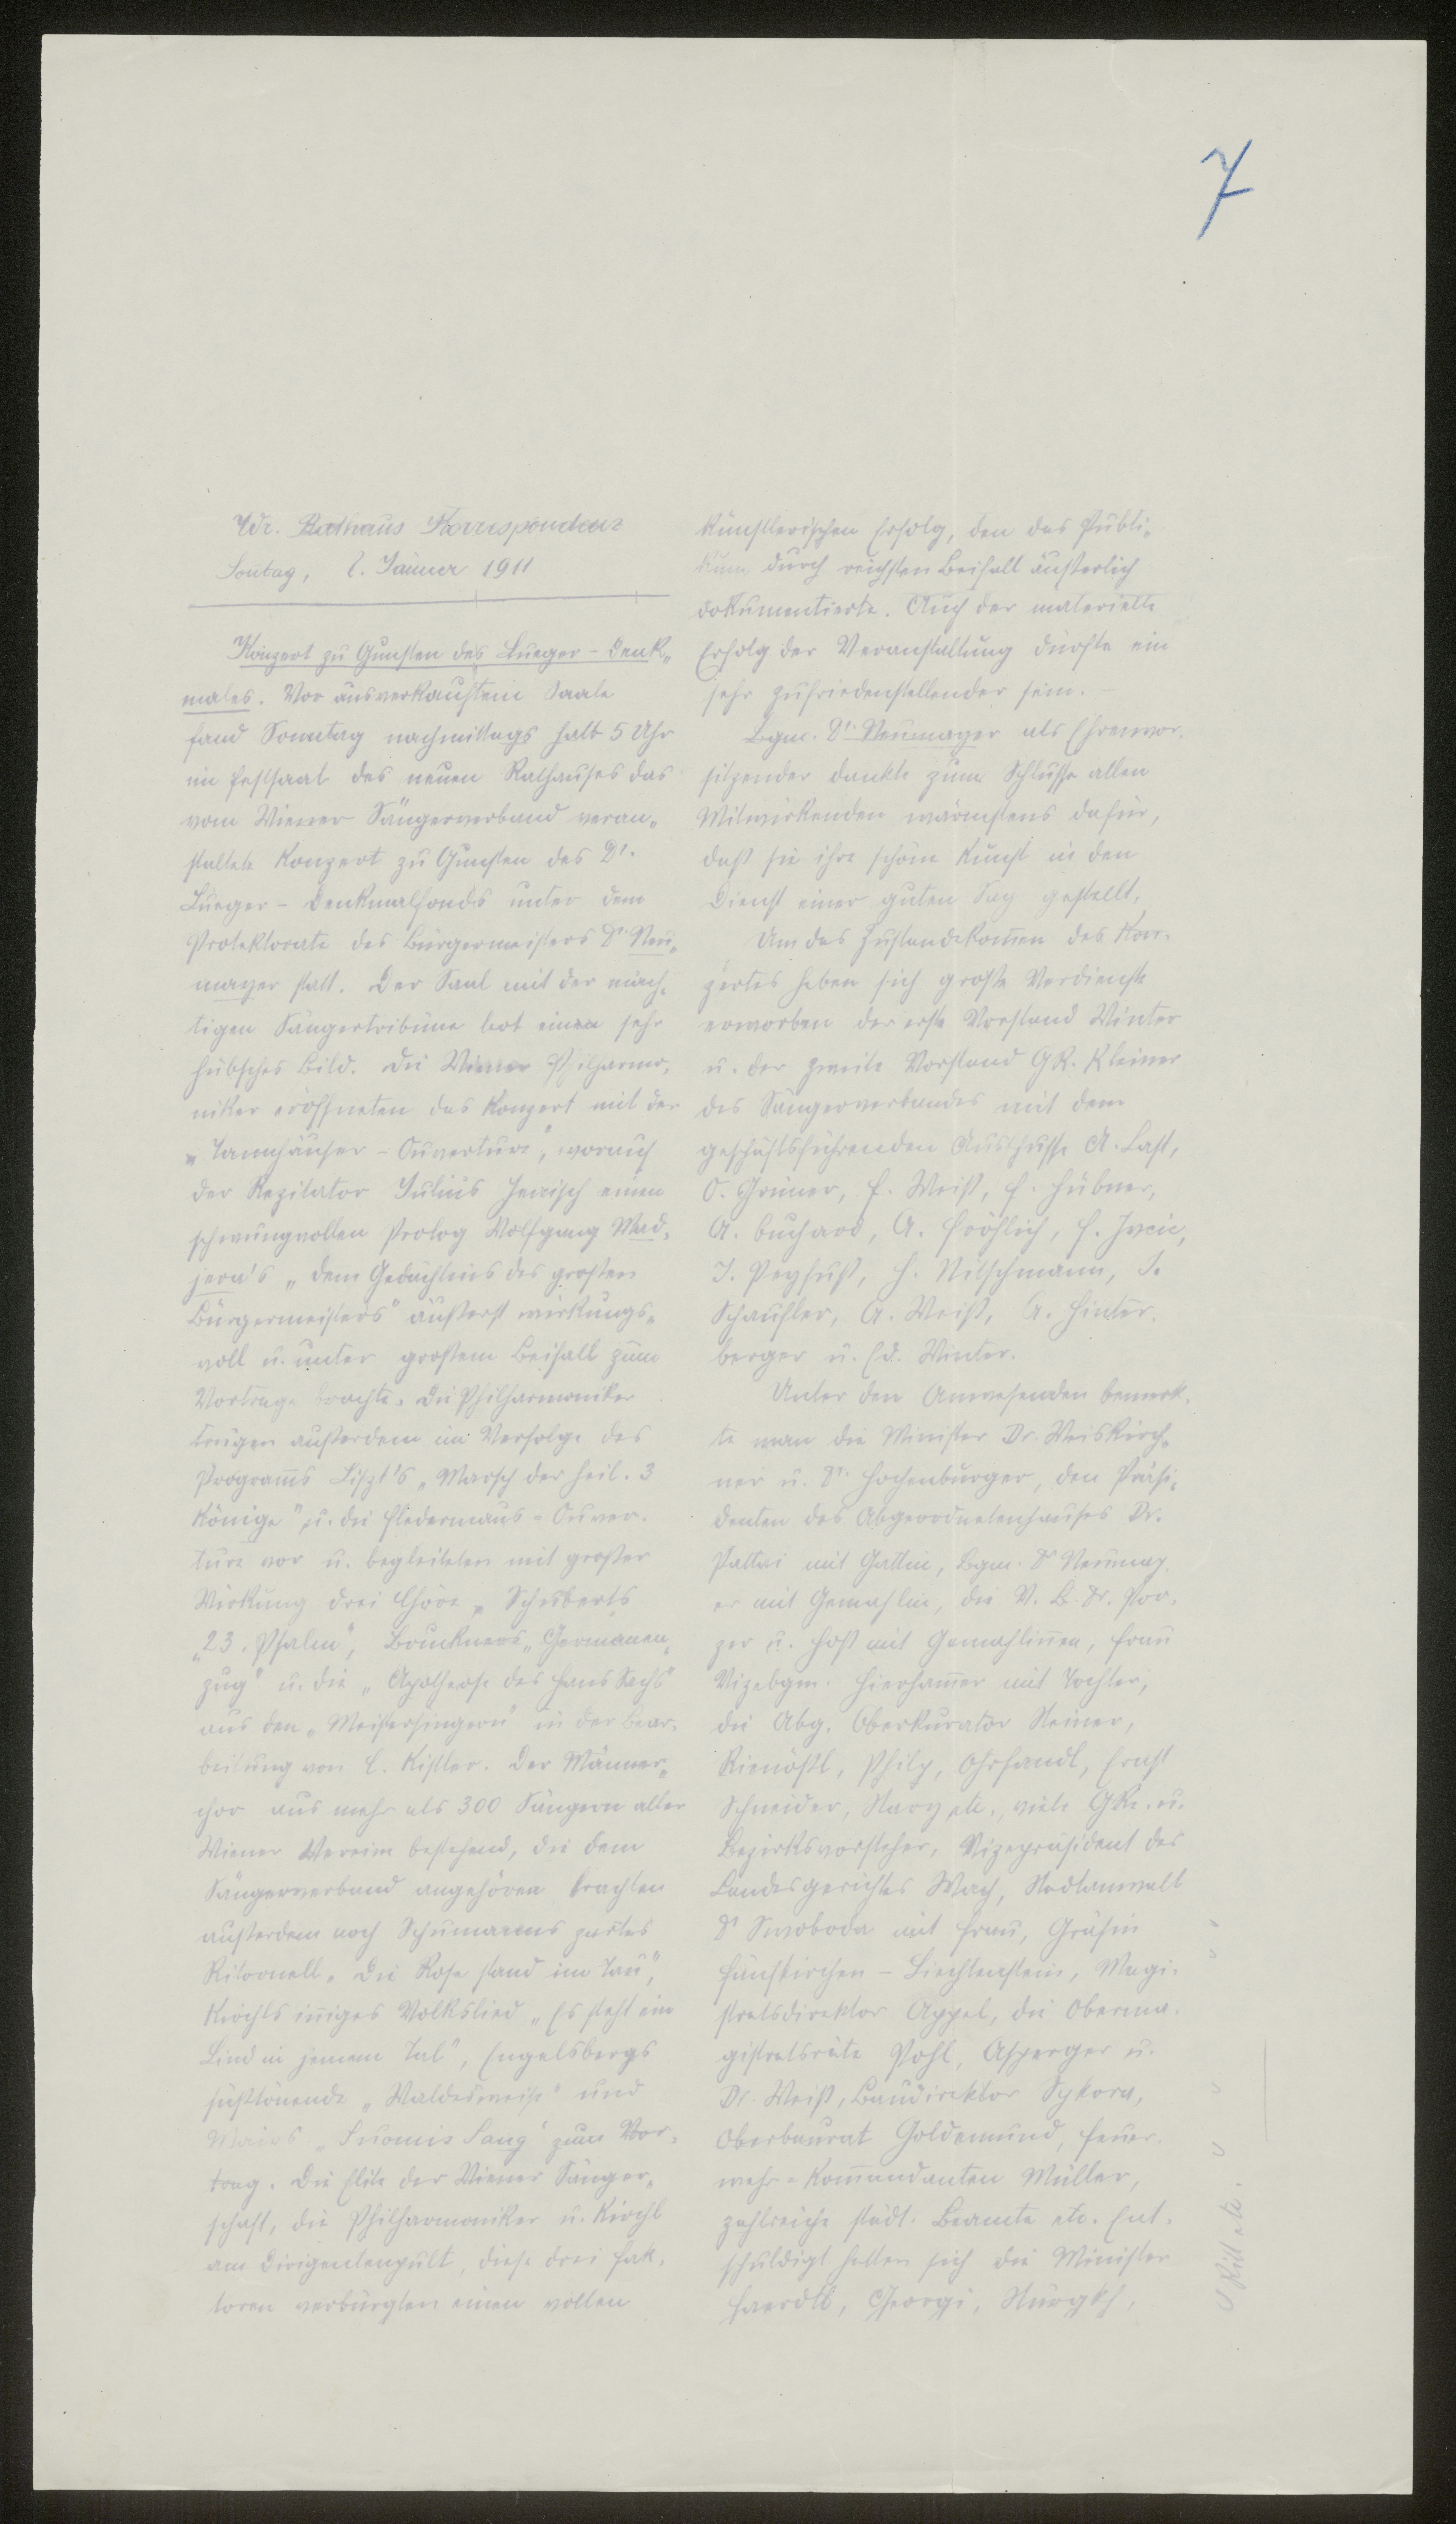 7
Wr. Rathaus Korrespondenz
Sontag, 8. Jänner 1911
Konzert zu Gunsten des Lueger-Denk-
males. Vor ausverkauftem Saale
fand Sonntag nachmittags halb 5 Uhr
im Festsaal des neuen Rathauses das
vom Wiener Sängerverband veran-
staltete Konzert zu Gunsten des Dr.
Lueger-Denkmalfonds unter dem
Protektorate des Bürgermeisters Dr. Neu-
mayer statt. Der Saal mit der mäch-
tigen Sängertribüne bot einen sehr
hübsches Bild. Die Wiener Philharmo-
niker eröffneten das Konzert mit der
„Tannhäuser-Ouverture", worauf
der Rezitator Julius einen
schwungvollen Prolog Wolfgang Mad-
jera's „dem Gedächtnis des großen
Bürgermeisters" äußerst wirkungs-
voll u. unter großem Beifall zum
Vortrage brachte. Die Philharmoniker
trugen außerdem im Verfolge des
Programms Liszt's „Marsch der heil. 3
Könige" u. die Fledermaus-Ouver-
ture vor u. begleiteten mit großer
Wirkung drei Chöre „Schuberts
„23. Psalm", Bruckners „Germanen-
zug" u. die „Apotheose des Hans Sachs"
aus den „Meistersingern" in der Bear-
beitung von C. Kistler. Der Männer-
chor aus mehr als 300 Sängern aller
Wiener Vereine bestehend, die dem
Sängerverband angehören brachten
außerdem noch Schumanns zartes
Ritornell „Die Rose stand im Tau",
Kirchls inniges Volkslied „Es steht ein
Lind in jenem Tal", Engelsbergs
süßtönende „Waldesweise" und
Mairs „Suomis Sang" zum Vor-
trag. Die Elite der Wiener Sänger-
schaft, die Philharmoniker u. Kirchl
am Dirigentenpult, diese drei Fak-
toren verbürgten einen vollen
künstlerischen Erfolg, den das Publi-
kum durch reichsten Beifall äußerlich
dokumentierte. Auch der materielle
Erfolg der Veranstaltung dürfte ein
sehr zufriedenstellender sein. –
Bgm. Dr. Neumayer als Ehrenvor-
sitzender dankte zum Schlusse allen
Mitwirkenden wärmstens dafür,
daß sie ihre schöne Kunst in den
Dienst einer guten Sag gestellt.
Um das Zustandekommen des Kon-
zertes haben sich große Verdienste
erworben der erste Vorstand Winter
u. der zweite Vorstand GR. Kleiner
des Sängerverbandes mit dem
geschäftsführenden Ausschusse A. Last,
O. Grüner, F. Weiß, F. Hübner,
A. Buchard, A. Fröhlich, F.
J. Peyfuß, H. Nitschmann, J.
Schaufler, A. Weiß, A. Hinter-
berger u. Ed. Winter.
Unter den Anwesenden bemerk-
te man die Minister Dr. Weiskirch-
ner u. Dr. Hochenburger, den Präsi-
denten des Abgeordnetenhauses Dr.
Pattai mit Gattin, Bgm. Dr. Neumay-
er mit Gemahlin, die V. B. Dr. Por-
zer u. Hoß mit Gemahlinnen, Frau
Vizebgm. Hierhammer mit Tochter,
die Abg. Oberkurator Steiner,
Rienößl, Philp, Ohrfandl, Ernst
Schneider, etc., viele GRe. u.
Bezirksvorsteher, Vizepräsident des
Landesgerichtes Wach, Stadtanwalt
Dr Swoboda mit Frau, Gräfin
Fünfkirchen-Liechtenstein, Magi-
stratsdirektor Appel, die Oberma-
gistratsräte Pohl, Asperger u.
Dr. Weiß, Baudirektor Sykora,
Oberbaurat Goldemund, Feuer-
wehr-Kommandanten Müller,
zahlreiche städt. Beamte etc. Ent-
schuldigt hatten sich die Minister
Haerdtl, Georgi, Stürgkh,